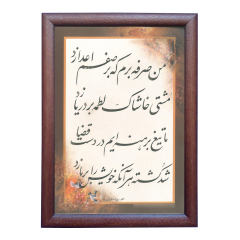 من صرفه برم که بر صفم اعدا زد
مشتی خاشاک لطمه بر دریا زد
ما تیغ برهنه‌ایم در دست قضا
شد کشته هر آنکه خویش را بر ما زد